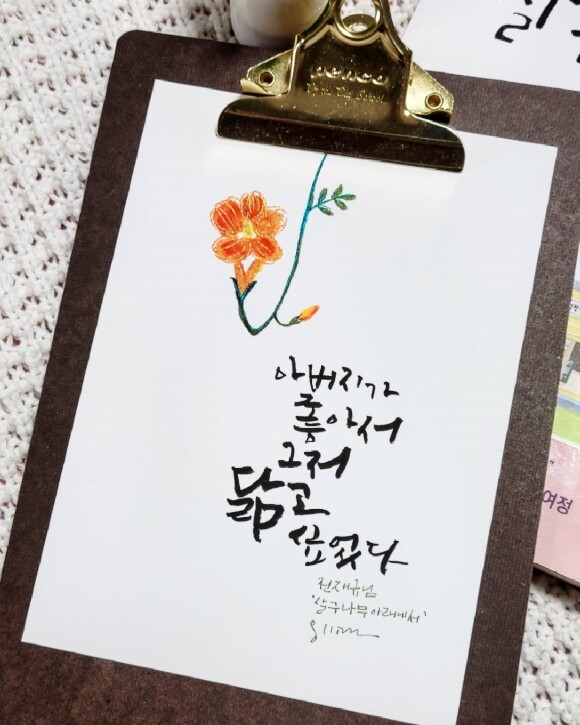 penco
아버지가
좋아서
그저
닮고
싶었다
전재규님
'살구나무 아래에서'
여정